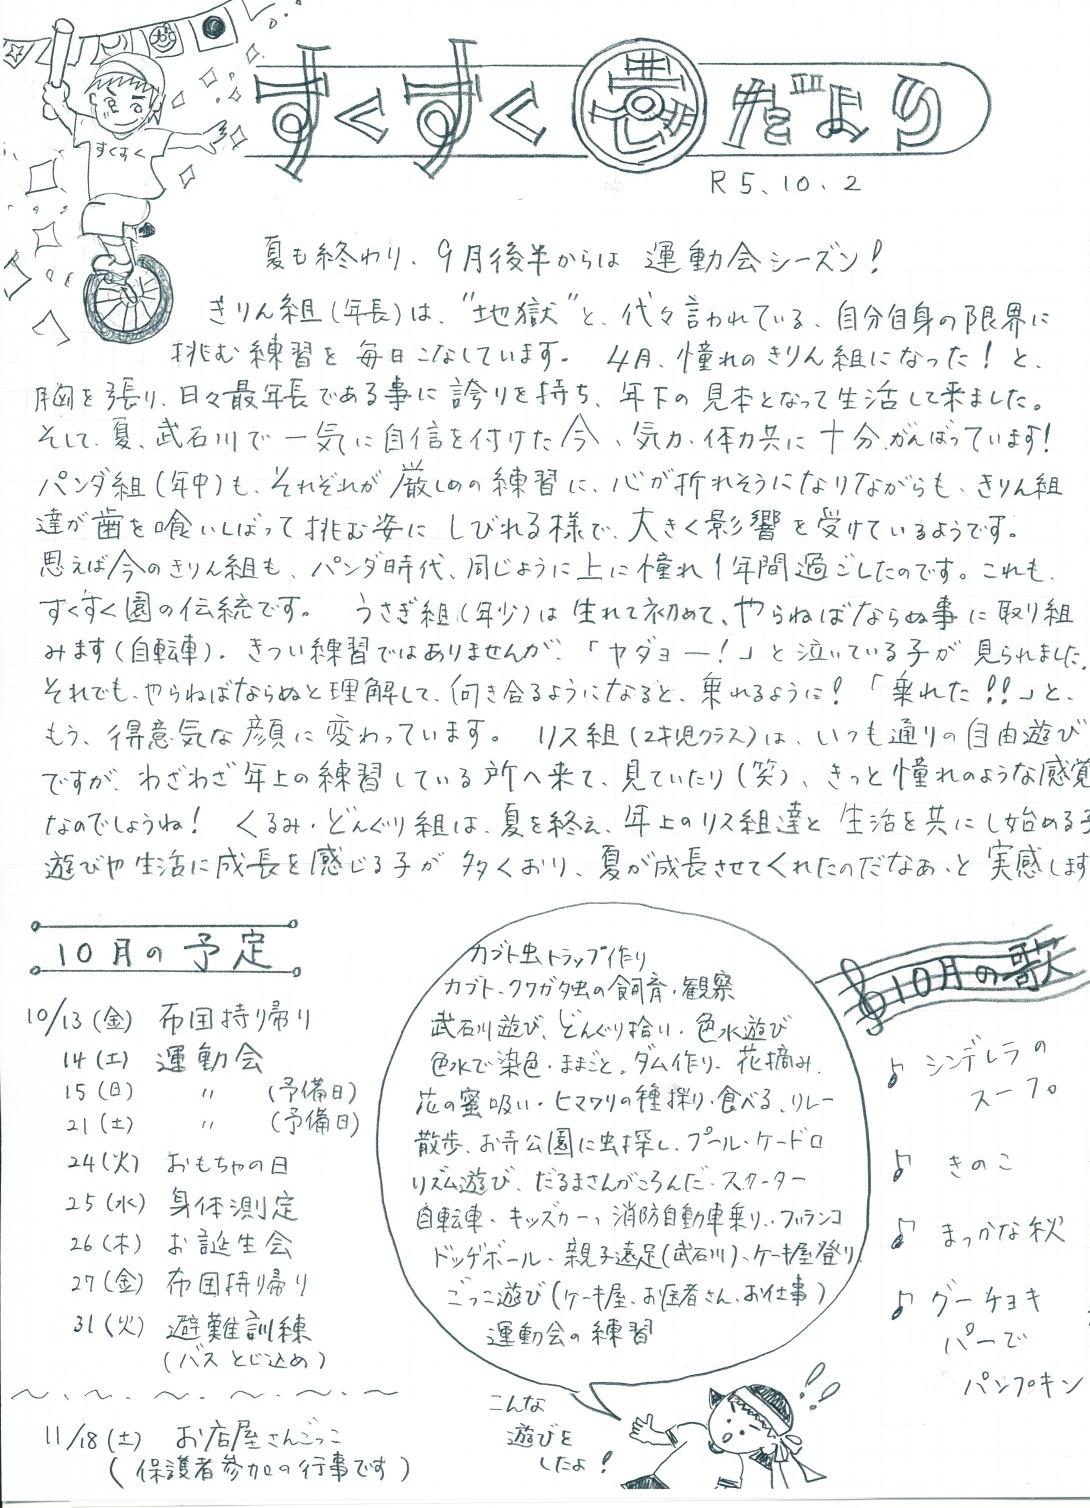 すくすく園だより
R5.10.2
すくすく
夏も終わり、9月後半からは 運動会シーズン!
きりん組(年長)は、"地獄"と、代々言われている、自分自身の限界に
挑む練習を 毎日こなしています。 4月、憧れのきりん組になった!と、
胸を張り、日々最年長である事に誇りを持ち、年下の見本となって生活して来ました。
そして、夏、武石川で一気に自信を付けた今、気力、体力共に十分、がんばっています!
パンダ組(年中)も、それぞれが厳しめの練習に、心が折れそうになりながらも、きりん組
達が歯を喰いしばって挑む姿に しびれる様で、大きく影響を受けているようです。
思えば今のきりん組も、パンダ時代、同じように上に憧れ1年間過ごしたのです。これも、
すくすく園の伝統です。 うさぎ組(年少)は生れて初めて、やらねばならぬ事に取り組
みます(自転車)。きつい練習ではありませんが、「ヤダョー!」と泣いている子が見られました。
それでも、やらねばならぬと理解して、向き合るようになると、乗れるように!「乗れた!!」と、
もう、得意気な顔に変わっています。 リス組(2才児クラス)は、いつも通りの自由遊び
ですが、わざわざ年上の練習している所へ来て、見ていたり(笑)、きっと憧れのような感覚
なのでしょうね! くるみ・どんぐり組は、夏を終え、年上のリス組達と生活を共にし始める子
遊びや生活に成長を感じる子が多くおり、夏が成長させてくれたのだなあ、と実感します
10月の予定
10/13(金) 布団持り帰り
14(土) 運動会
15(日) 〃 (予備日)
21(土) 〃 (予備日)
24(火) おもちゃの日
25(水) 身体測定
26(木) お誕生会
27(金) 布団持り帰り
31(火) 避難訓練
(バスとじ込め)
11/18(土) お店屋さんごっこ
(保護者参加の行事です)
カブト虫トラップ作り
カブト、クワガタ虫の飼育・観察
武石川遊び、どんぐり拾い・色水遊び
色水で染色・ままごと、ダム作り、花摘み、
花の蜜吸い・ヒマワリの種採り・食べる、リレー
散歩、お寺公園に虫探し、プール・ケードロ
リズム遊び、だるまさんがころんだ・スクーター
自転車・キッズカー、消防自動車乗り、ブランコ
ドッヂボール、親子遠足(武石川)、ケーキ屋登り、
ごっこ遊び(ケーキ屋、お医者さん、お仕事)
運動会の練習
こんな
遊びを
したよ!
10月の歌
♪ シンデレラの
スープ
♪ きのこ
♪ まっかな秋
♪ グーチョキ
パーで
パンプキン